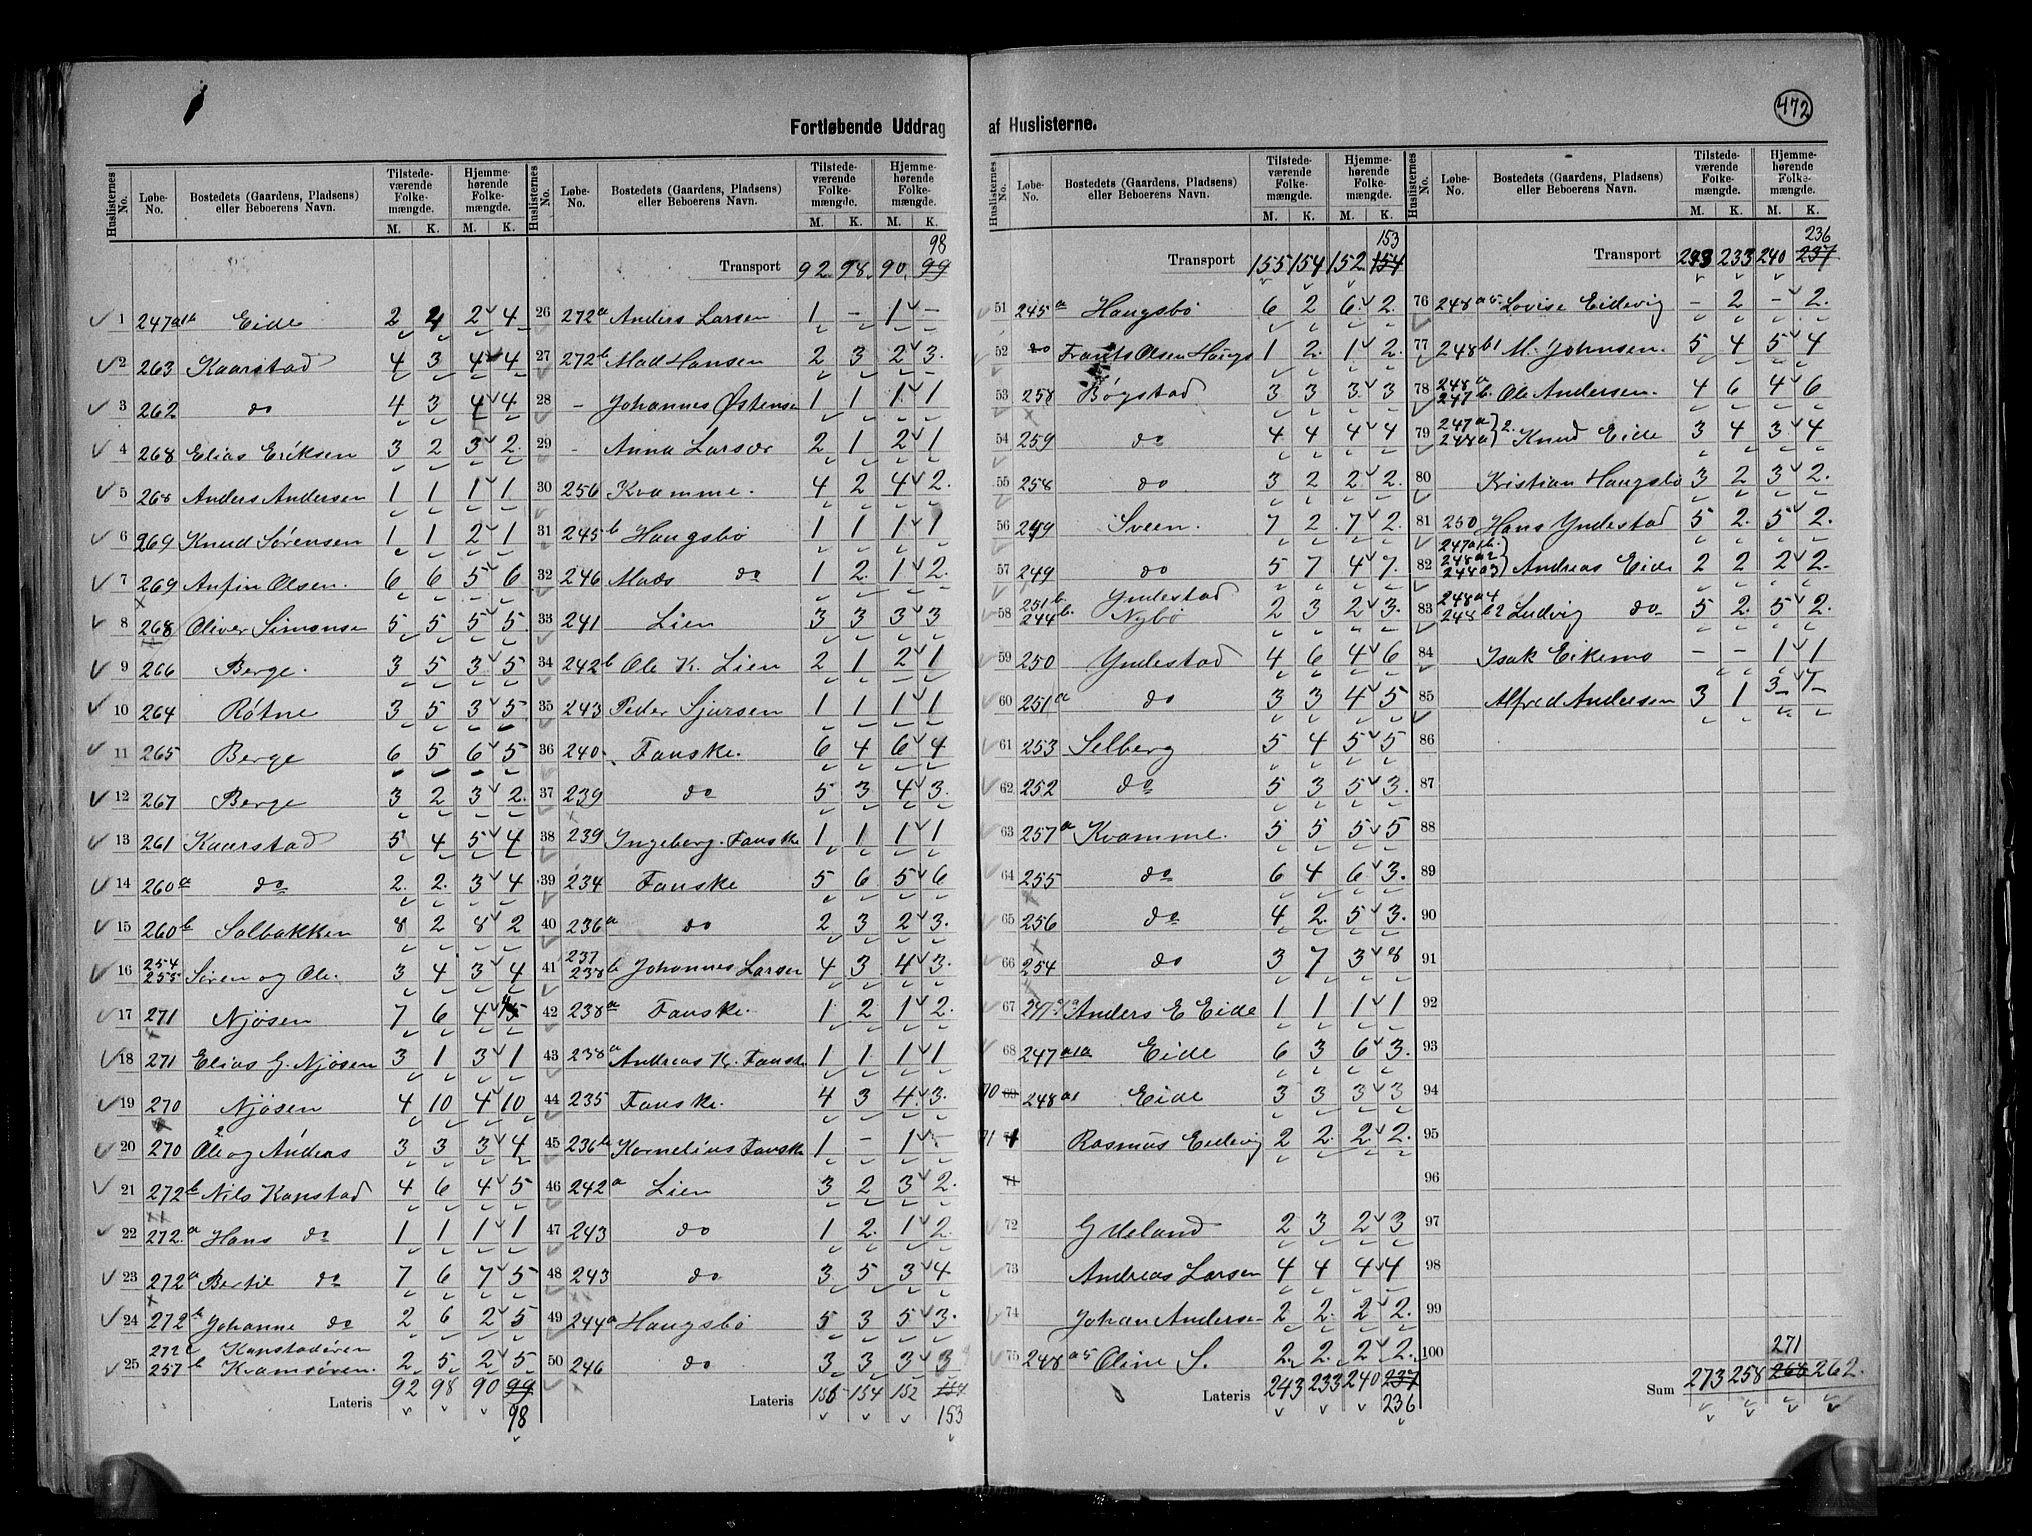 472
Fortløbende Uddrag af Huslisterne.
Huslisternes No. Løbe-No. Bostedets (Gaardens, Pladsens) eller Beboerens Navn. Tilstedeværende Folkemængde. M. K. Hjemmehørende Folkemængde. M. K.
1 247a1b Eide 2 4 2 4
2 263 Kaarstad 4 3 4 4
3 262 do 4 3 4 4
4 268 Elias Eriksen 3 2 3 2
5 268 Anders Andersen 1 1 1 1
6 269 Knud Sørensen 1 1 2 1
7 269 Anfin Olsen. 6 6 5 6
8 268 Oliver Simonse 5 5 5 5
9 266 Berge. 3 5 3 5
10 264 Røtne 3 5 3 5
11 265 Berge 6 5 6 5
12 267 Berge 3 2 3 2.
13 261 Kaarstad 5 4 5 4
14 260a do 2. 2. 3 4
15 260b Solbakken 8 2 8 2
16 254 255 Søren og Ole. 3 4 3 4
17 271 Njøsen 7 6 4 5
18 271 Elias G. Njøsen 3 1 3 1
19 270 Njøsen 4 10 4 10
20 270 Ole og Anders 3 3 3 4
21 272b Nils Kanstad 4 6 4 5
22 272a Hans do 1 1 1 1
23 272a Bertil do 7 6 7 5
24 272b Johanne do 2 6 2 5
272c Kanstadøren
25 257b Kvamsøren. 2 5 2 5
Lateris 92 98 90 99
98
Huslisternes No. Løbe-No. Bostedets (Gaardens, Pladsens) eller Beboerens Navn. Tilstedeværende Folkemængde. M. K. Hjemmehørende Folkemængde. M. K.
98
Transport 92 98 90 99
26 272a Anders Larsen 1 – 1 –
27 272b Mad Hansen 2 3 2 3.
28 – Johannes Østense 1 1 1 1
29 – Anna Larsdr 2 1 2 1
30 256 Kvamme. 4 2 4 2.
31 245b Haugsbø 1 1 1 1
32 246 Mads do 1 2 1 2.
33 241 Lien 3 3 3 3
34 242b Ole K. Lien 2 1 2 1
35 243 Peder Sjursen 1 1 1 1
36 240 Fauske. 6 4 6 4
37 239 do 5 3 4 3.
38 239 Ingeborg. Fauske 1 1 1 1
39 234 Fauske 5 6 5 6
40 236a do 2 3 2 3.
41 237 238b Johannes Larsen 4 3 4 3.
42 238a Fauske. 1 2 1 2.
43 238a Andreas K. Fausk 1 1 1 1
44 235 Fauske. 4 3 4 3.
45 236b Kornelius Fauske 1 – 1 –
46 242a Lien 3 2 3 2.
47 243 do 1 2. 1 2.
48 243 do 3 5 3 4
49 244a Haugsbø 5 3 5 3.
50 246 do 3 3 3 3
Lateris 155 154 152 154
153
Huslisternes No. Løbe-No. Bostedets (Gaardens, Pladsens) eller Beboerens Navn. Tilstedeværende Folkemængde. M. K. Hjemmehørende Folkemængde. M. K.
153
Transport 155 154 152 154
51 245a Haugsbø 6 2 6 2.
52 do Frants Olsen Haugs 1 2. 1 2.
53 258 Bøgstad 3 3 3 3
54 259 do 4 4 4 4
55 258 do 3 2 2 2.
56 249 Sveen. 7 2 7 2.
57 249 do 5 7 4 7.
Yndestad
58 251b. 244b. Nybø 2 3 2 3.
59 250 Yndestad 4 6 4 6
60 251a do 3 3 4 5
61 253 Selberg 5 4 5 5
62 252 do 5 3 5 3.
63 257a Kvamme. 5 5 5 5
64 255 do 6 4 6 3.
65 256 do 4 2 5 3.
66 254 do 3 7 3 8
67 Anders E Eide 1 1 1 1
68 247a1a Eide 6 3 6 3.
70 69 248a1 Eide 3 3 3 3
71 Rasmus Eidevig 2 2. 2 2.
71
72 G Udeland 2 3 2 3
73 Andreas Larsen 4 4 4 4
74 Johan Anderse 2 2. 2 2.
75 248a5 Oline S. 2 2. 2 2.
Lateris 243 233 240 237
236
Huslisternes No. Løbe-No. Bostedets (Gaardens, Pladsens) eller Beboerens Navn. Tilstedeværende Folkemængde. M. K. Hjemmehørende Folkemængde. M. K.
236
Transport 243 233 240 237.
76 248a5. Lovise Eidevig – 2 – 2.
77 248b1 M. Johnsen. 5 4 5 4
78 248a 247b. Ole Andersen. 4 6 4 6
79 247a 248a}2. Knud Eide 3 4 3 4
80 Kristian Haugsbø 3 2 3 2.
81 250 Hans Yndestad 5 2. 5 2.
247a1b.
82 248a2 248a3 Andreas Eide 2 2 2 2.
83 248a4 248b2 Ludvig do 5 2. 5 2.
84 Isak Eikemo – – 1 1
85 Alfred Andersen 3 1 3 1
86
87
88
89
90
91
92
93
94
95
96
97
98
99
100
271
Sum 273 258 268 262.